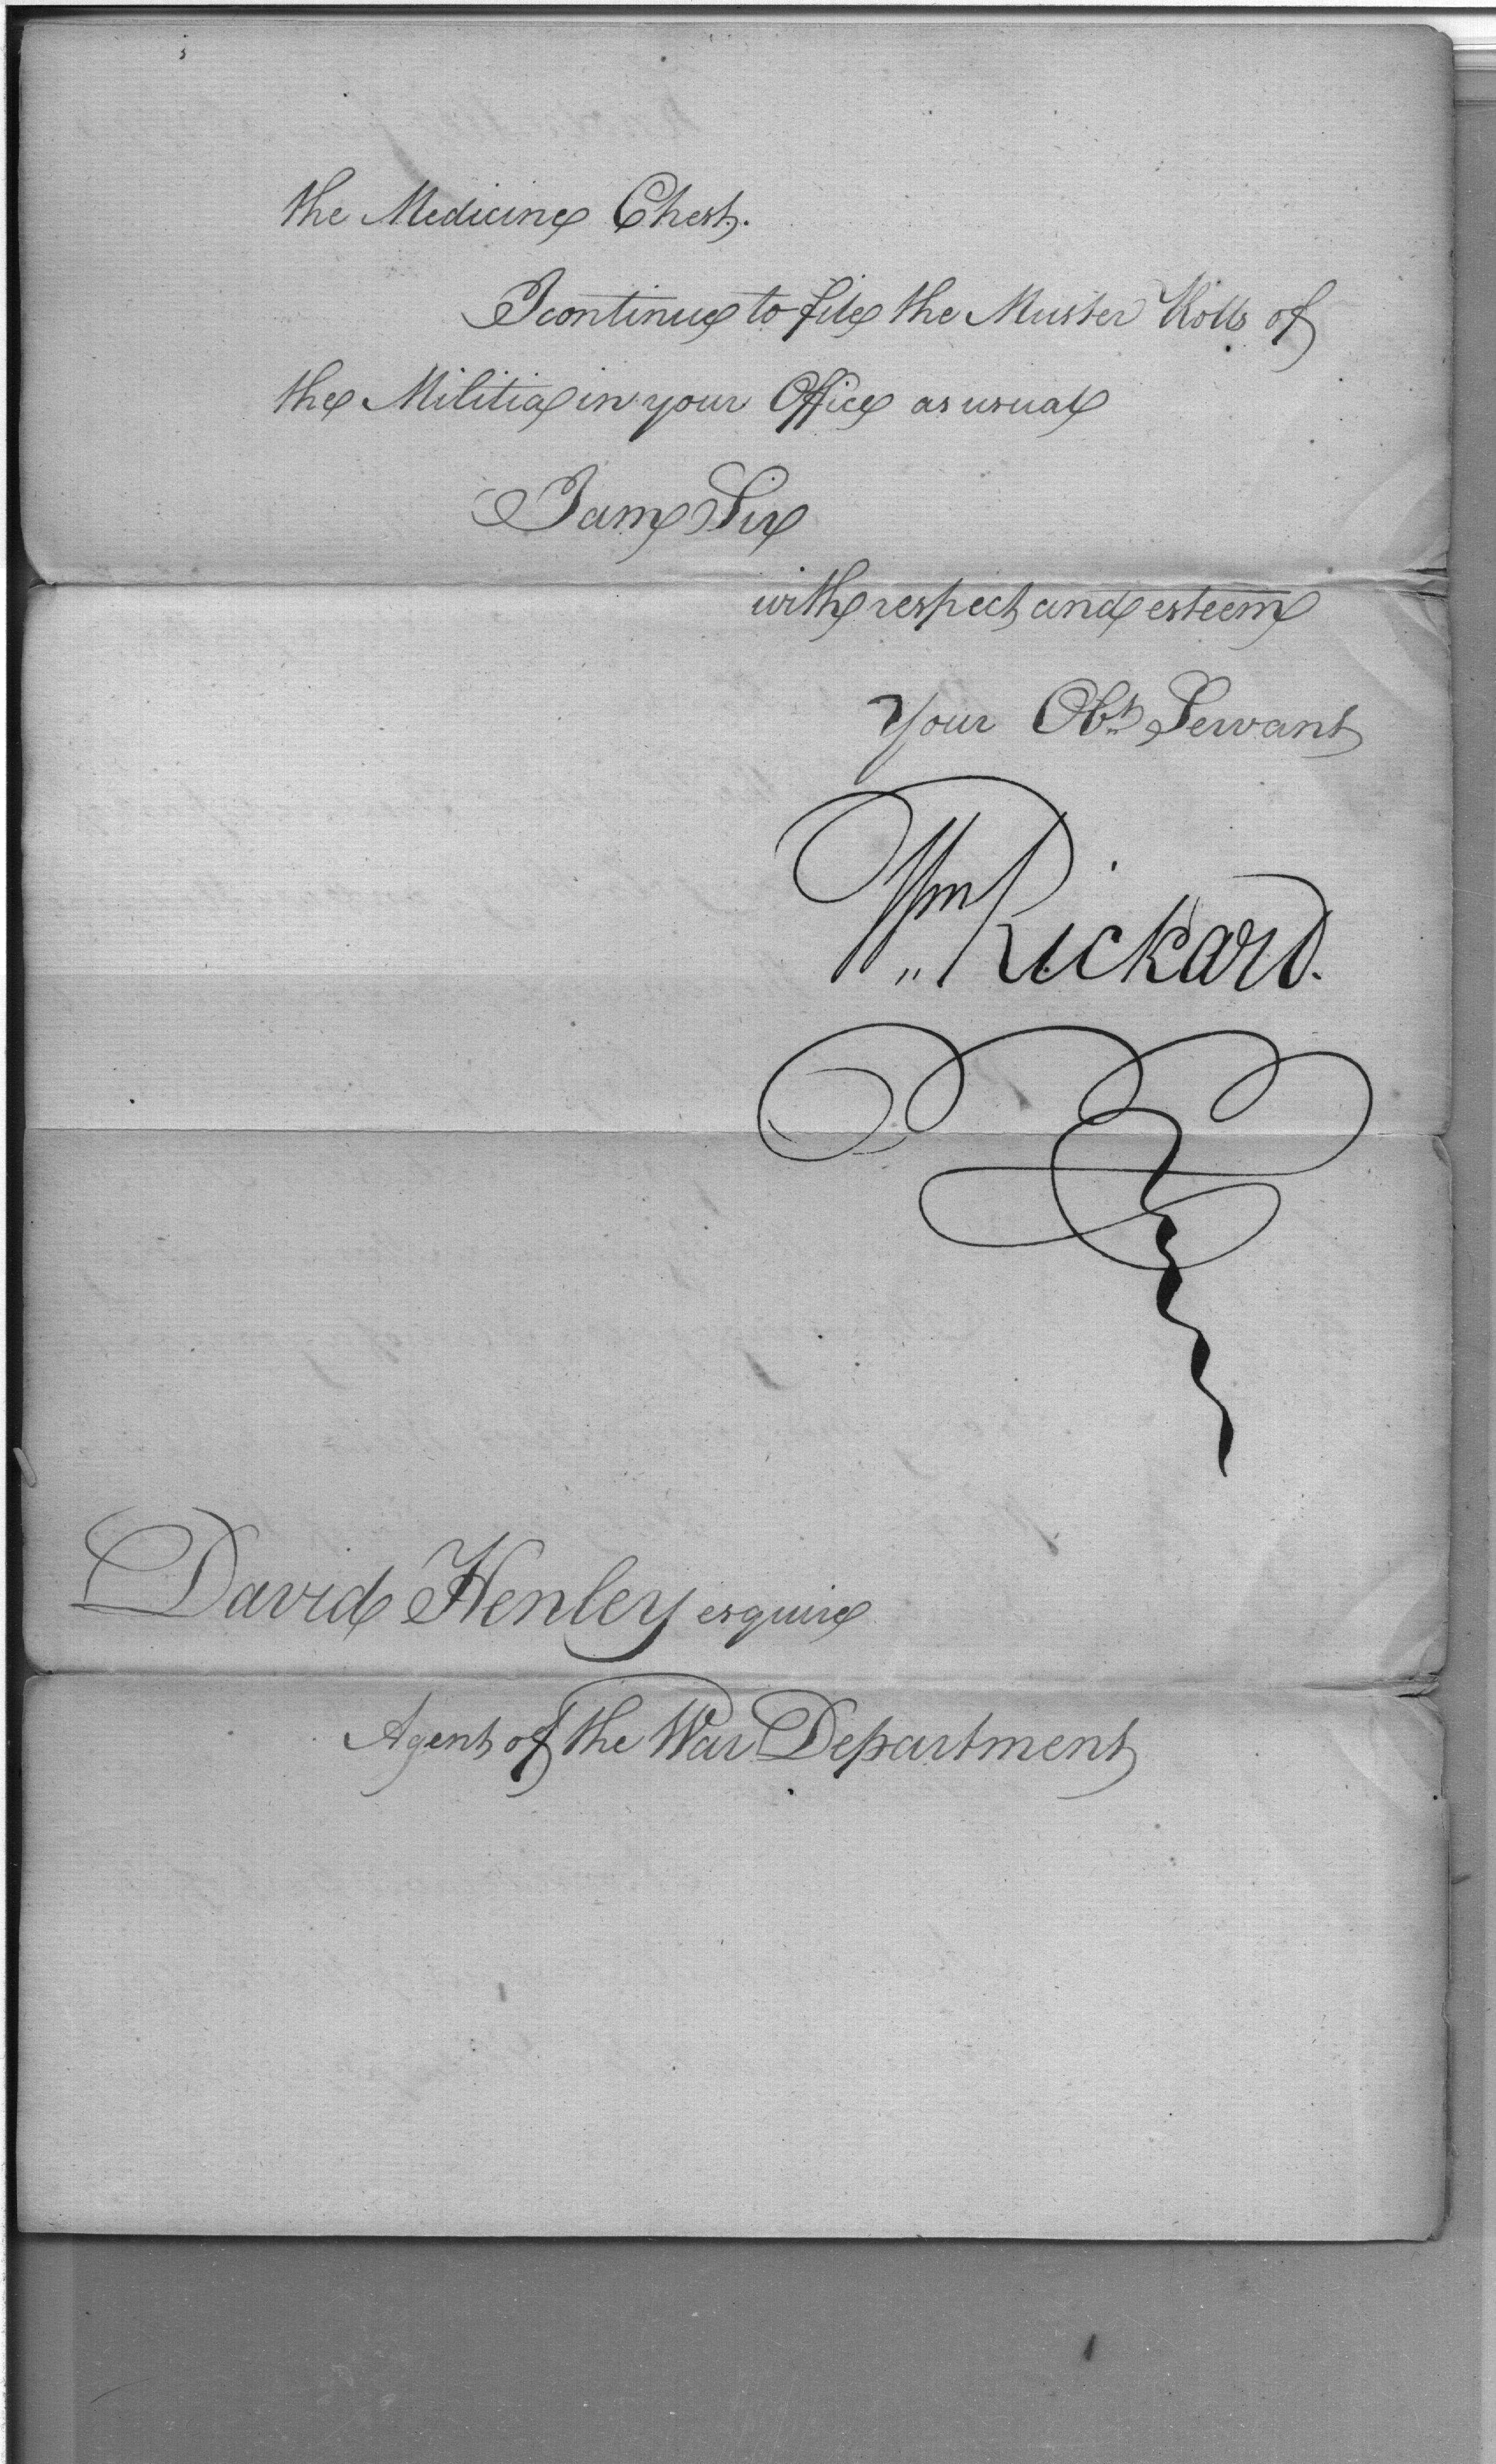 the Medicine Chest.
I continue to file the Muster Rolls of
the Militia in your Office as usual
I am Sir
with respect and esteem
Your Obt Servant
Wm Rickard.
David Henley esquire
Agent of the War Department